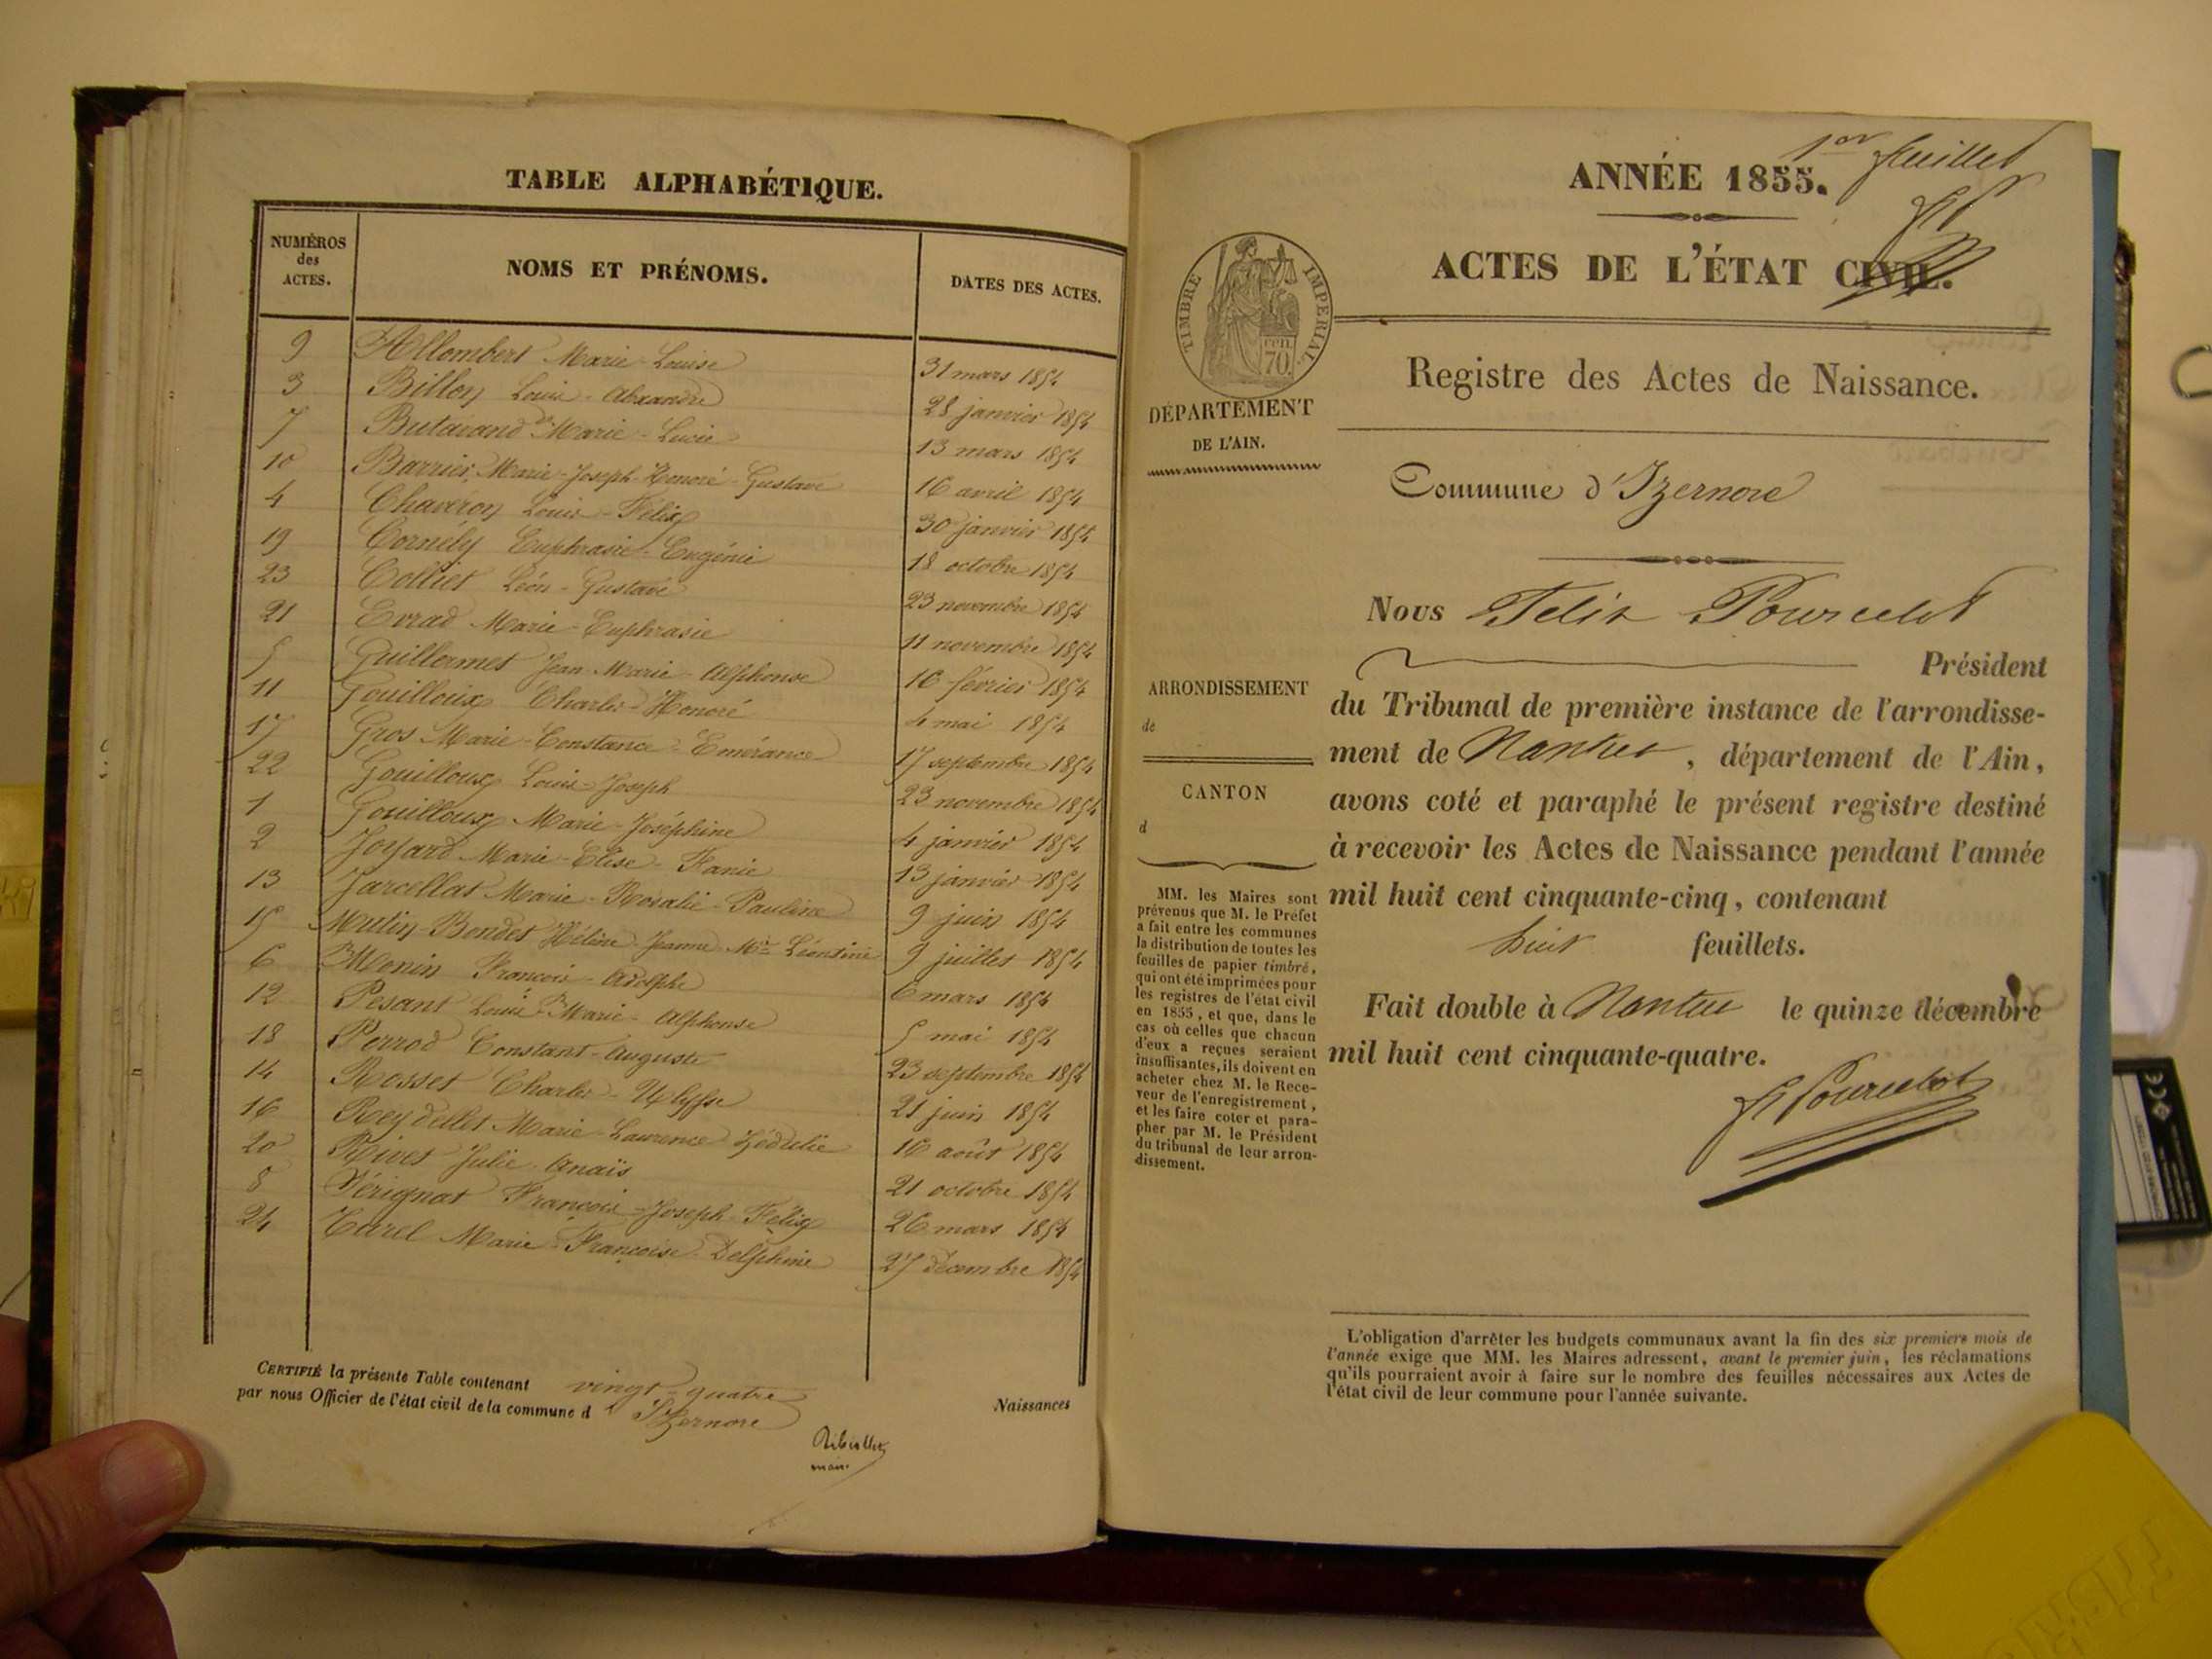 TABLE ALPHABÉTIQUE.
NUMÉROS des ACTES. NOMS ET PRÉNOMS. DATES DES ACTES.
9 Allombert Marie-Louise 31 mars 1854
3 Billon Louis-Alexandre 28 janvier 1854
7 Marie-Lucie 13 mars 1854
10 Barrier Marie-Joseph-Honoré-Gustave 16 avril 1854
4 Chaveron Louis-Félix 30 janvier 1854
19 Cornély Euphrasie-Eugénie 18 octobre 1854
23 Colliet Léon-Gustave 23 novembre 1854
21 Evrad Marie-Euphrasie 11 novembre 1854
5 Guillermet Jean-Marie-Alphonse 16 février 1854
11 Gouilloux Charles-Honoré 4 mai 1854
17 Gros Marie-Constance-Emérance 17 septembre 1854
22 Gouilloux Louis-Joseph 23 novembre 1854
1 Gouilloux Marie-Joséphine 4 janvier 1854
2 Joyard Marie-Elise-Fanie 13 janvier 1854
13 Jarcellat Marie-Rosalie-Pauline 9 juin 1854
15 Mutin-Bondet Hélène-Jeanne-Mie-Léontine 9 juillet 1854
6 Monin François-Adolphe 6 mars 1854
12 Pesant Louis-Marie-Alphonse 5 mai 1854
18 Perrod Constant-Auguste 23 septembre 1854
14 Rosset Charles-Ulysse 21 juin 1854
16 Reydellet Marie-Laurence 16 août 1854
20 Rivet Julie-Anaïs 21 octobre 1854
8 Sérignat François-Joseph-Félix 26 mars 1854
24 Carel Marie-Françoise-Delphine 27 décembre 1854
CERTIFIÉ la présente Table contenant vingt-quatre Naissances
par nous Officier de l'état civil de la commune d'Izernore
maire
1er feuillet
ANNÉE 1855.
ACTES DE L'ÉTAT CIVIL.
TIMBRE IMPÉRIAL
70.
Registre des Actes de Naissance.
DÉPARTEMENT
DE L'AIN.
Commune d'Izernore
Nous Félix Pourcelot
Président
ARRONDISSEMENT
de
CANTON
d
du Tribunal de première instance de l'arrondisse-
ment de Nantua, département de l'Ain,
avons coté et paraphé le présent registre destiné
à recevoir les Actes de Naissance pendant l'année
mil huit cent cinquante-cinq, contenant
huit feuillets.
Fait double à Nantua le quinze décembre
mil huit cent cinquante-quatre.
F Pourcelot
MM. les Maires sont
prévenus que M. le Préfet
a fait entre les communes
la distribution de toutes les
feuilles de papier timbré,
qui ont été imprimées pour
les registres de l'état civil
en 1855, et que, dans le
cas où celles que chacun
d'eux a reçues seraient
insuffisantes, ils doivent en
acheter chez M. le Rece-
veur de l'enregistrement,
et les faire coter et para-
pher par M. le Président
du tribunal de leur arron-
dissement.
L'obligation d'arrêter les budgets communaux avant la fin des six premiers mois de
l'année exige que MM. les Maires adressent, avant le premier juin, les réclamations
qu'ils pourraient avoir à faire sur le nombre des feuilles nécessaires aux Actes de
l'état civil de leur commune pour l'année suivante.